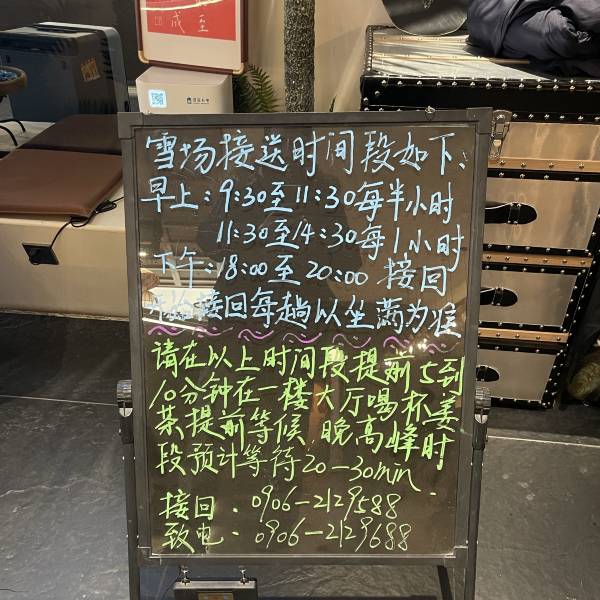 成至
雪场接送时间段如下、
早上：9:30至11:30每半小时
11:30至14:30每1小时
下午：18:00至20:00 接回
接回每趟以坐满为准
请在以上时间段提前5到
10分钟在一楼大厅喝杯姜
茶提前等候 晚高峰时
段预计等待20-30min.
接回：0906-2129588
致电：0906-2129688